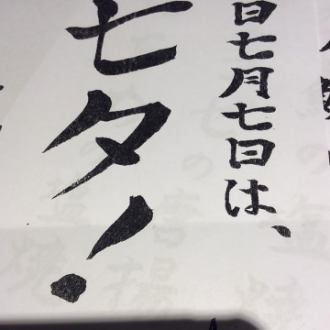 日七月七日は、
七夕!